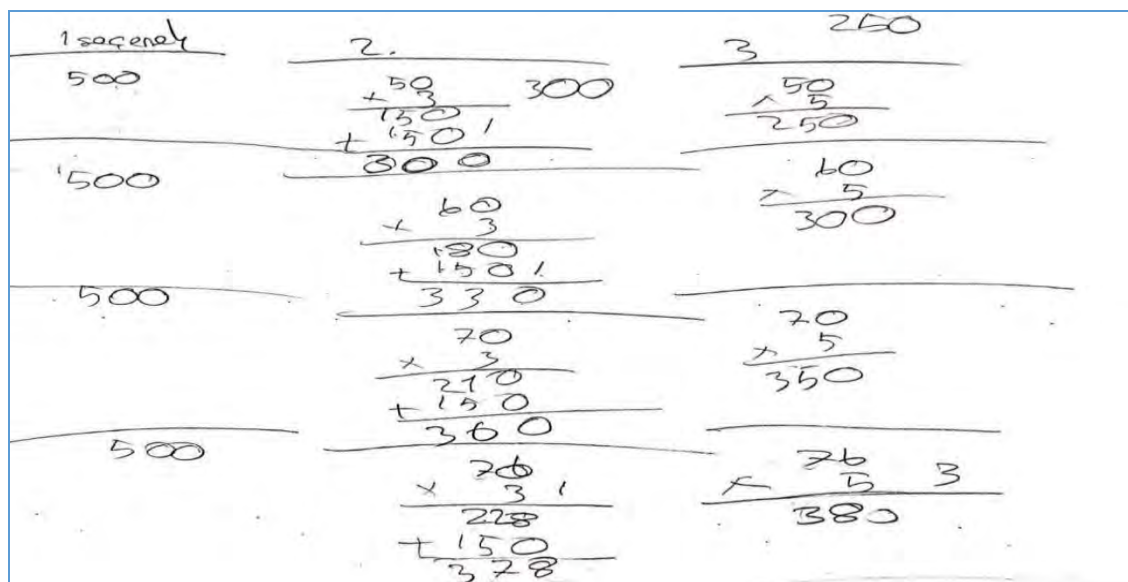 1 seçenek
500
500
500
500
2.
50 300
x 3
150
+ 150
300
60
x 3
180
+ 150
330
70
x 3
210
+ 150
360
76
x 3
228
+ 150
378
250
3
50
x 5
250
60
x 5
300
70
x 5
350
76
x 5 3
380